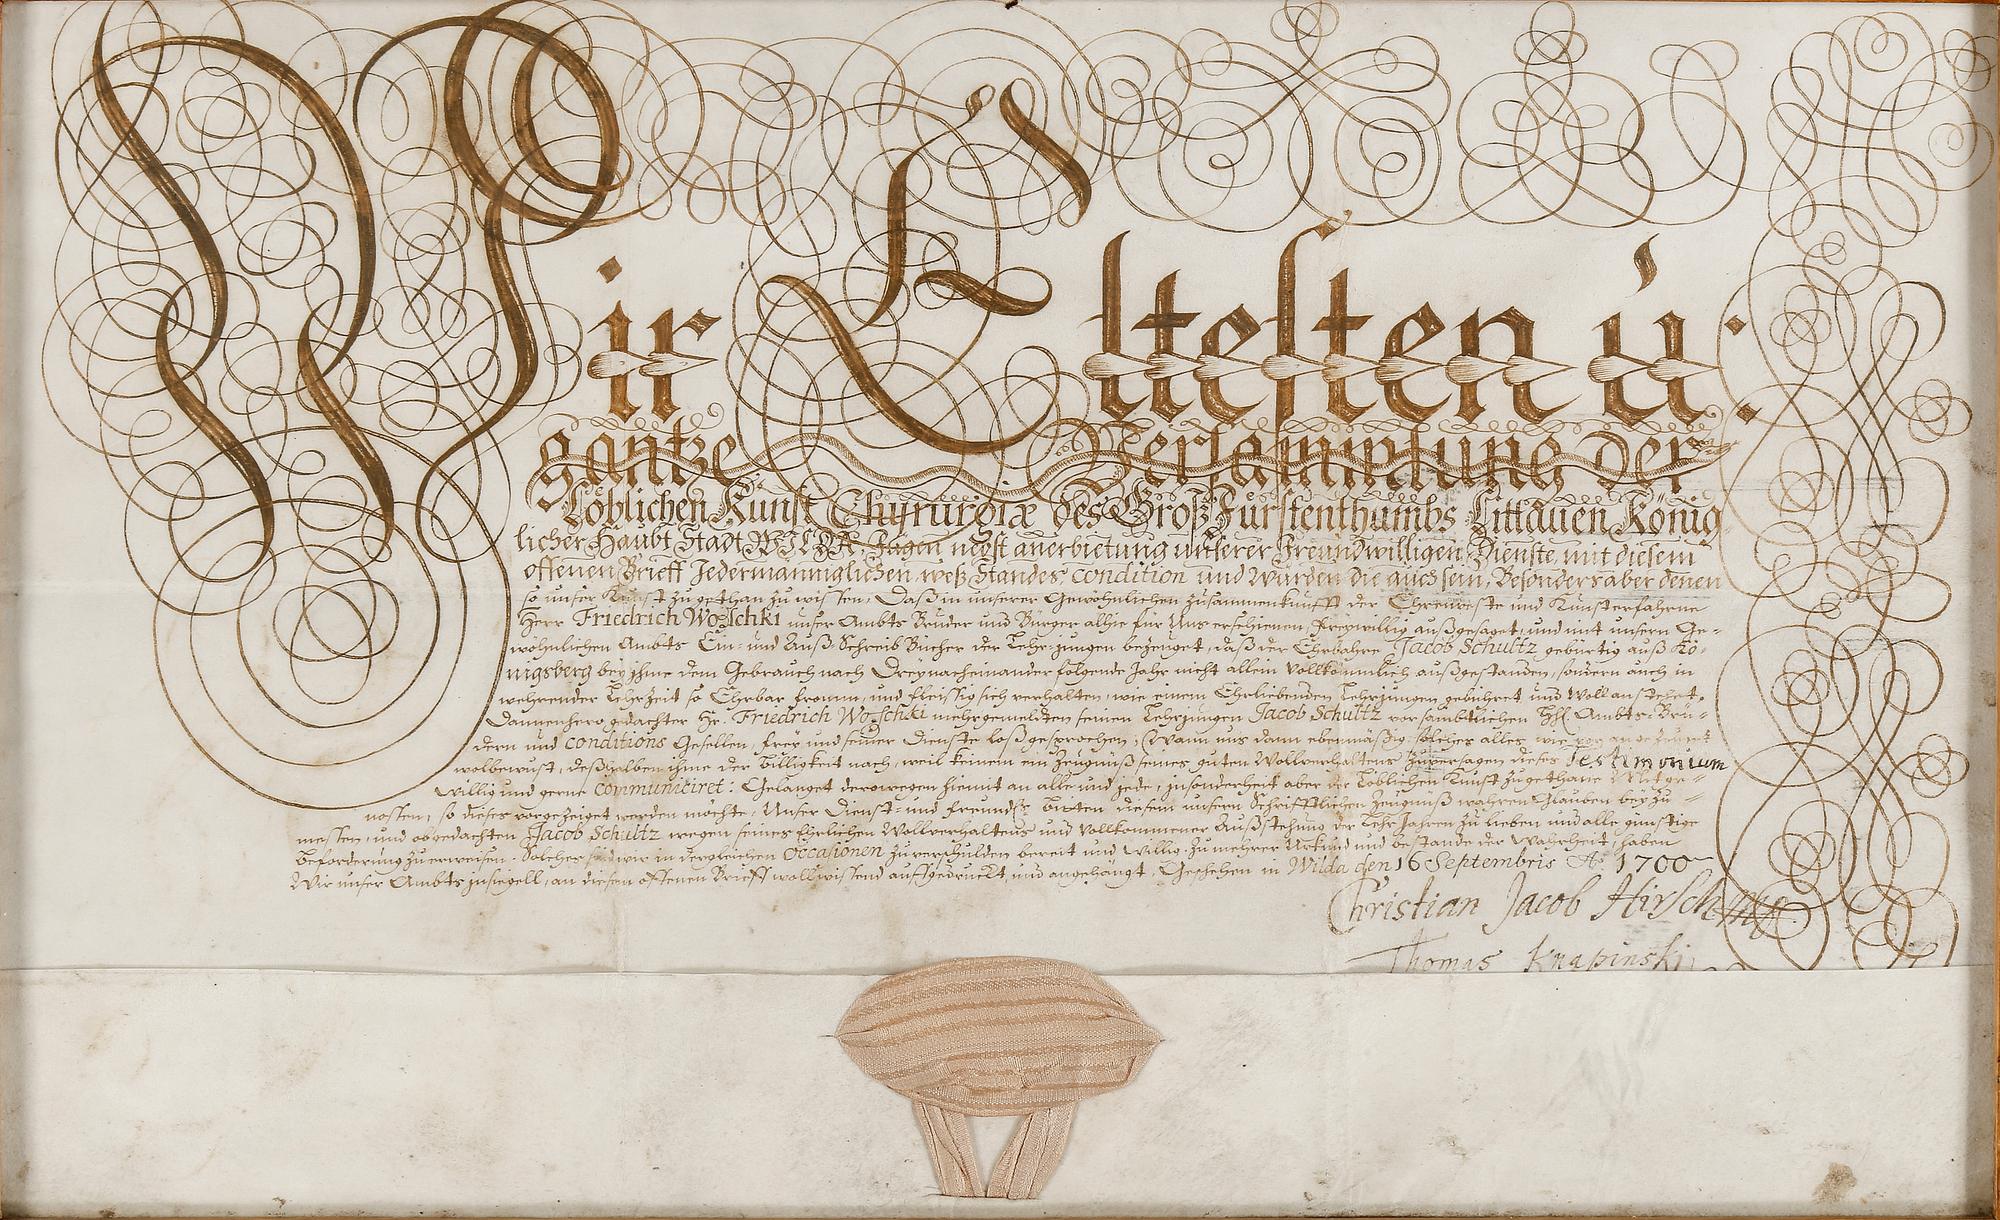 Wir Eltesten ú:
gantze Versammlung der
Löblichen Kunst Chyrurgiæ des Groß Fürstenthumbs Littauen König
licher Haubt Stadt WILDA, fügen nebst anerbietung unserer Freundwilligen Dienste, mit diesem
offenen Brieff Jedermänniglichen, weß Standes condition und Würden die auch sein, Besonders aber denen
so unser Kunst zugethan zu wissen, Daß in unserer Gewöhnlichen zusammenkunfft der Ehrenveste und Kunsterfahrne
Herr Friedrich Woschki unser Ambts Bruder und Bürger alhie für Uns erschienen, freywillig außgesaget, und mit unsern Ge-
wöhnlichen Ambts Ein- und Auß-Schreib Bücher der Lehr-jungen bezeuget, daß der Ehrbahre Jacob Schultz gebürtig auß Kö-
nigsberg bey ihme dem Gebrauch nach Drey nacheinander folgende Jahr nicht allein vollkömmlich außgestanden, sondern auch in
wehrender Lehrzeit so Ehrbar, fromm, und fleissig sich verhalten, wie einem Ehrliebenden Lehrjungen gebühret und Woll anstehet.
Dannenhero gedachter Hr. Friedrich Woschki mehrgemeldten seinen Lehrjungen Jacob Schultz vor sambtlichen HH. Ambts-Brü-
dern und conditions Gesellen, frey und seiner Dienste loßgesprochen; Wann uns dann ebenmäßig solches alles, wie
wolbewust, deßhalben ihme der Billigkeit nach, weil keinem ein Zeugniß seines guten Wollverhaltens zu versagen dieses Testimonium
willig und gerne communiciret: Gelanget derowegen hiemit an alle und jede, insonderheit aber der Löblichen Kunst zugethane Mitge-
nossen, so dieses vorgezeiget werden möchte, Unser Dienst- und freundl: bitten diesem unsern Schrifftlichen Zeugniß wahren Glauben bey zu-
messen, und obgedachten Jacob Schultz wegen seines Ehrlichen Wollverhaltens und vollkommener Außstehung der Lehr Jahren zu lieben und alle günstige
beforderung zu erweisen. Solches sind wir in dergleichen Occasionen zu verschulden bereit und willig. Zu mehrer Urkund und bestande der Wahrheit, haben
Wir unser Ambts insiegell, an diesen offenen Brieff wollwissend auffgedruckt, und angehängt, Geschehen in Wilda den 16 Septembris Aº 1700
Christian Jacob
Thomas Knapinski